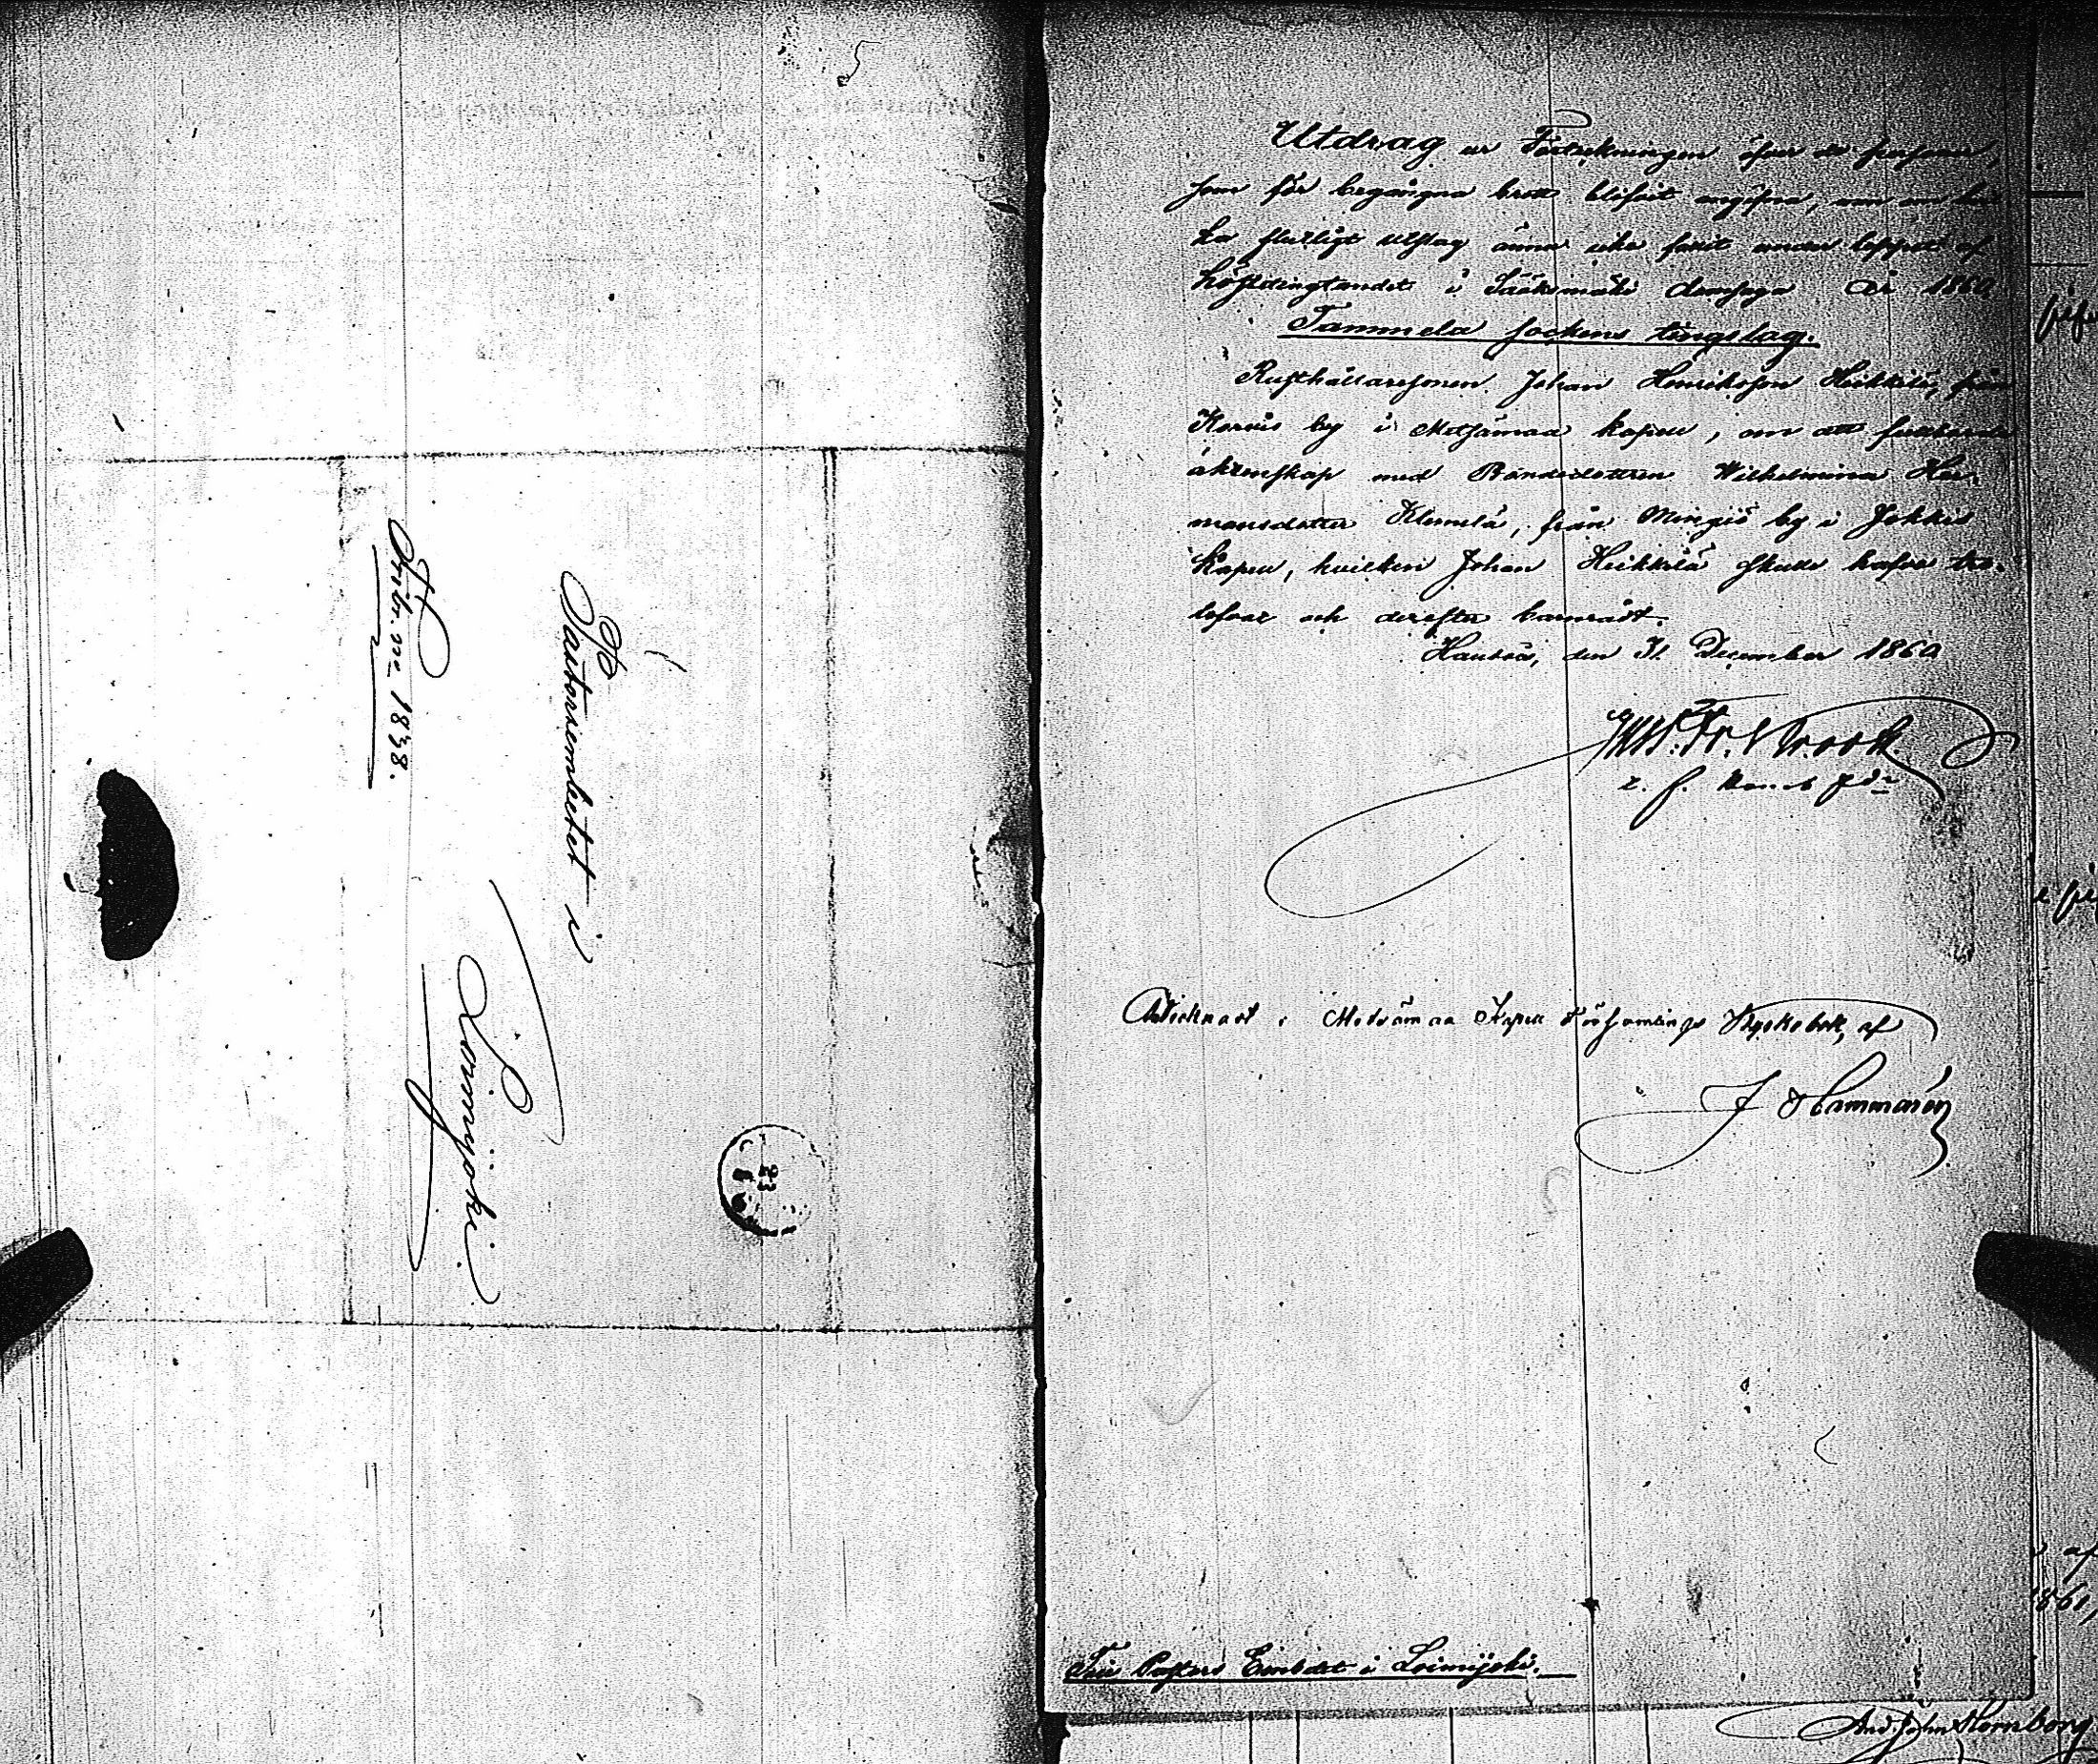 Pastorsembetet i
Loimijoki
Fribr. № 1838.
Utdrag ur Förteckningen öfver de personer,
som för begångna brott blifvit angifna, men om
slutligt utslag ännu icke fallit under loppet af
hösttingtandet i Sääksmäki domsaga År 1860
Tammela sockens tingslag.
Rusthållaresonen Johan Henriksson Heikkilä, från
by i Metsämaa kapell, om att fullborda
äktenskap med Bondedottren Wilhelmina Her-
mansdotter Klemelä, från Mingiö by i Jokkis
Kapell, hvilken Johan Heikkilä skulle hafva tro-
lofvat och derefter
Hausjö, den 31 December 1860
Krook
Metsämaa Kapell Församlings Kyrkobok, af
J Hammarén
Till Pastors Embetet i Loimijoki.
1861,
And. John Hornborg